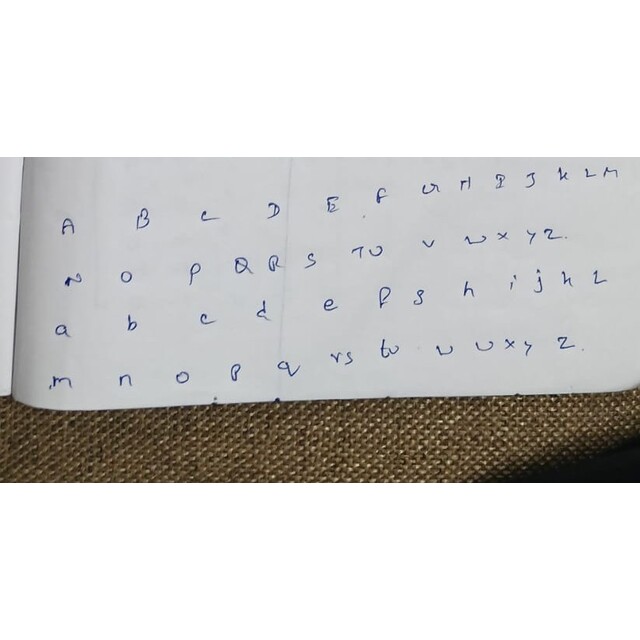 A B C D E F G H I J K L M
N O P Q R S T U V W X Y Z.
a b c d e f g h i j k l
m n o p q r s t u v w x y z.